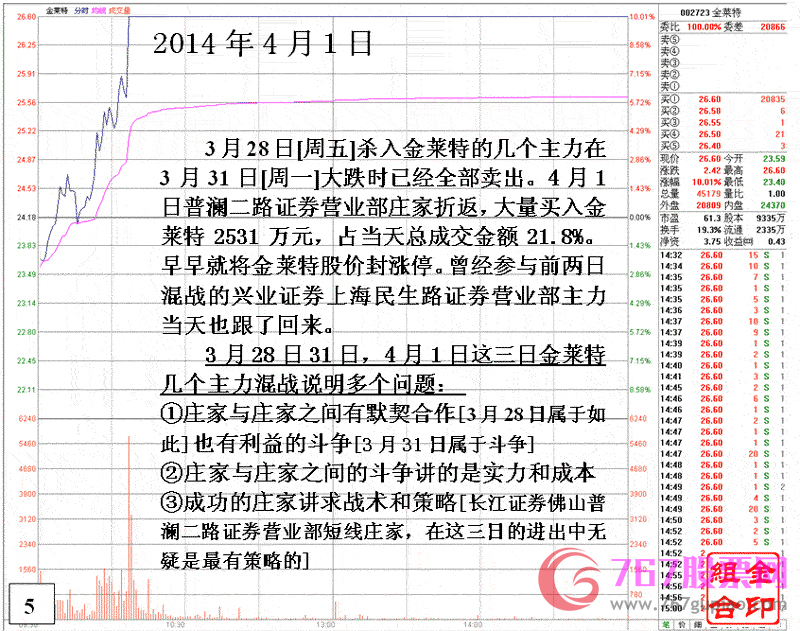 金莱特 分时 均线 成交量
002723 金莱特
2014 年 4 月 1 日
3 月 28 日[周五]杀入金莱特的几个主力在
3 月 31 日[周一]大跌时已经全部卖出。4 月 1
日普澜二路证券营业部庄家折返,大量买入金
莱特 2531 万元，占当天总成交金额 21.8%。
早早就将金莱特股价封涨停。曾经参与前两日
混战的兴业证券上海民生路证券营业部主力
当天也跟了回来。
3 月 28 日 31 日，4 月 1 日这三日金莱特
几个主力混战说明多个问题：
①庄家与庄家之间有默契合作[3 月 28 日属于如
此]也有利益的斗争[3 月 31 日属于斗争]
②庄家与庄家之间的斗争讲的是实力和成本
③成功的庄家讲求战术和策略[长江证券佛山普
澜二路证券营业部短线庄家，在这三日的进出中无
疑是最有策略的]
5
26.60
26.25
25.91
25.56
25.22
24.87
24.53
24.18
23.83
23.49
23.14
22.80
22.45
22.11
6240
5460
4680
3900
3120
2340
1560
10.01%
8.58%
7.15%
5.72%
4.29%
2.86%
1.43%
0.00%
1.43%
2.86%
4.29%
5.72%
7.15%
8.58%
6240
5460
4680
3900
3120
2340
1560
780
09:30 10:30 13:00 14:00
委比 100.00% 委差 20866
卖⑤
卖④
卖③
卖②
卖①
买① 26.60 20835
买② 26.58 6
买③ 26.55 1
买④ 26.50 21
买⑤ 26.40 3
现价 26.60 今开 23.59
涨跌 2.42 最高 26.60
涨幅 10.01% 最低 23.40
总量 45179 量比 1.00
外盘 20809 内盘 24370
市盈 61.3 股本 9335万
换手 19.3% 流通 2335万
净资 3.75 收益㈣ 0.43
14:32 26.60 15 S 1
14:34 26.60 10 S 1
14:35 26.60 7 S 1
14:35 26.60 1 S 1
14:35 26.60 5 S 1
14:36 26.60 3 S 1
14:37 26.60 10 S 1
14:37 26.60 9 S 1
14:39 26.60 1 S 1
14:39 26.60 2 S 1
14:40 26.60 1 S 1
14:41 26.60 3 S 1
14:45 26.60 2 S 1
14:46 26.60 6 S 1
14:46 26.60 1 S 1
14:47 26.60 2 S 1
14:47 26.60 1 S 1
14:47 26.60 1 S 1
14:47 26.60 20 S 1
14:48 26.60 1 S 1
14:48 26.60 1 S 1
14:49 26.60 1 S 2
14:49 26.60 4 S 1
14:49 26.60 20 S 1
14:50 26.60 3 S 1
14:52 26.60 2 S 1
14:52 26.60 5 S 1
14:52
14:53
14:55
14:56
14:56
15:00
767股票网
金組印合
笔 价 细